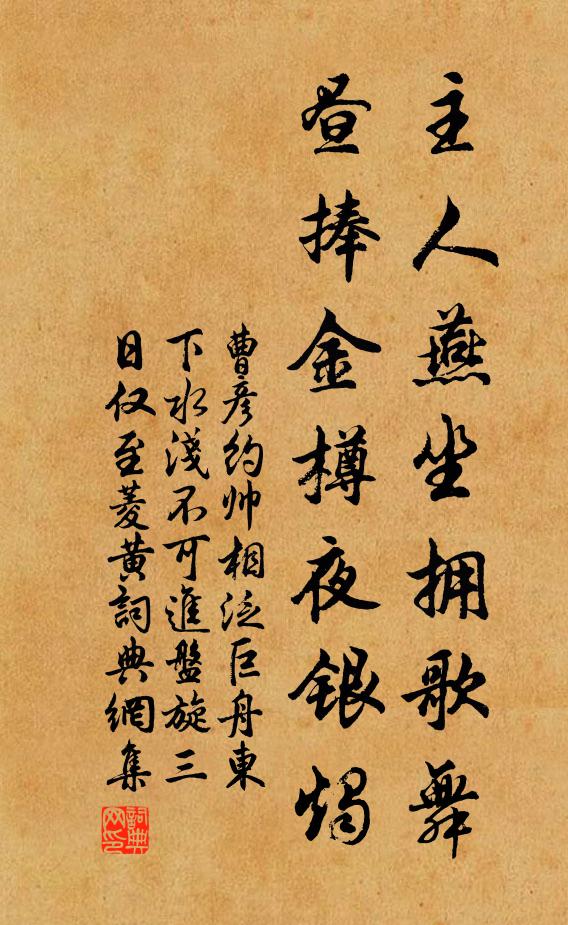 主人燕坐拥歌舞
昼捧金樽夜银烛
曹彦约帅相泛巨舟東
下水淺不可進盤旋三
日仅至菱黄詞典網集
詞典
网印